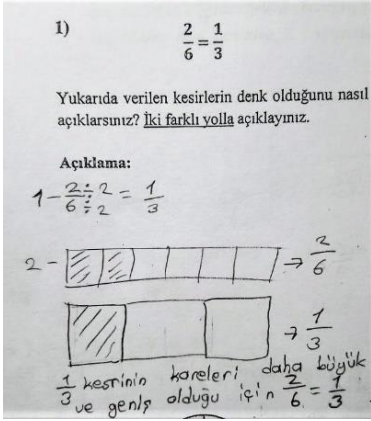 1)
2/6 = 1/3
Yukarıda verilen kesirlerin denk olduğunu nasıl
açıklarsınız? İki farklı yolla açıklayınız.
Açıklama:
1- 2÷2/6÷2 = 1/3
2 - → 2/6
→ 1/3
1/3 kesrinin kareleri daha büyük
ve geniş olduğu için 2/6 = 1/3